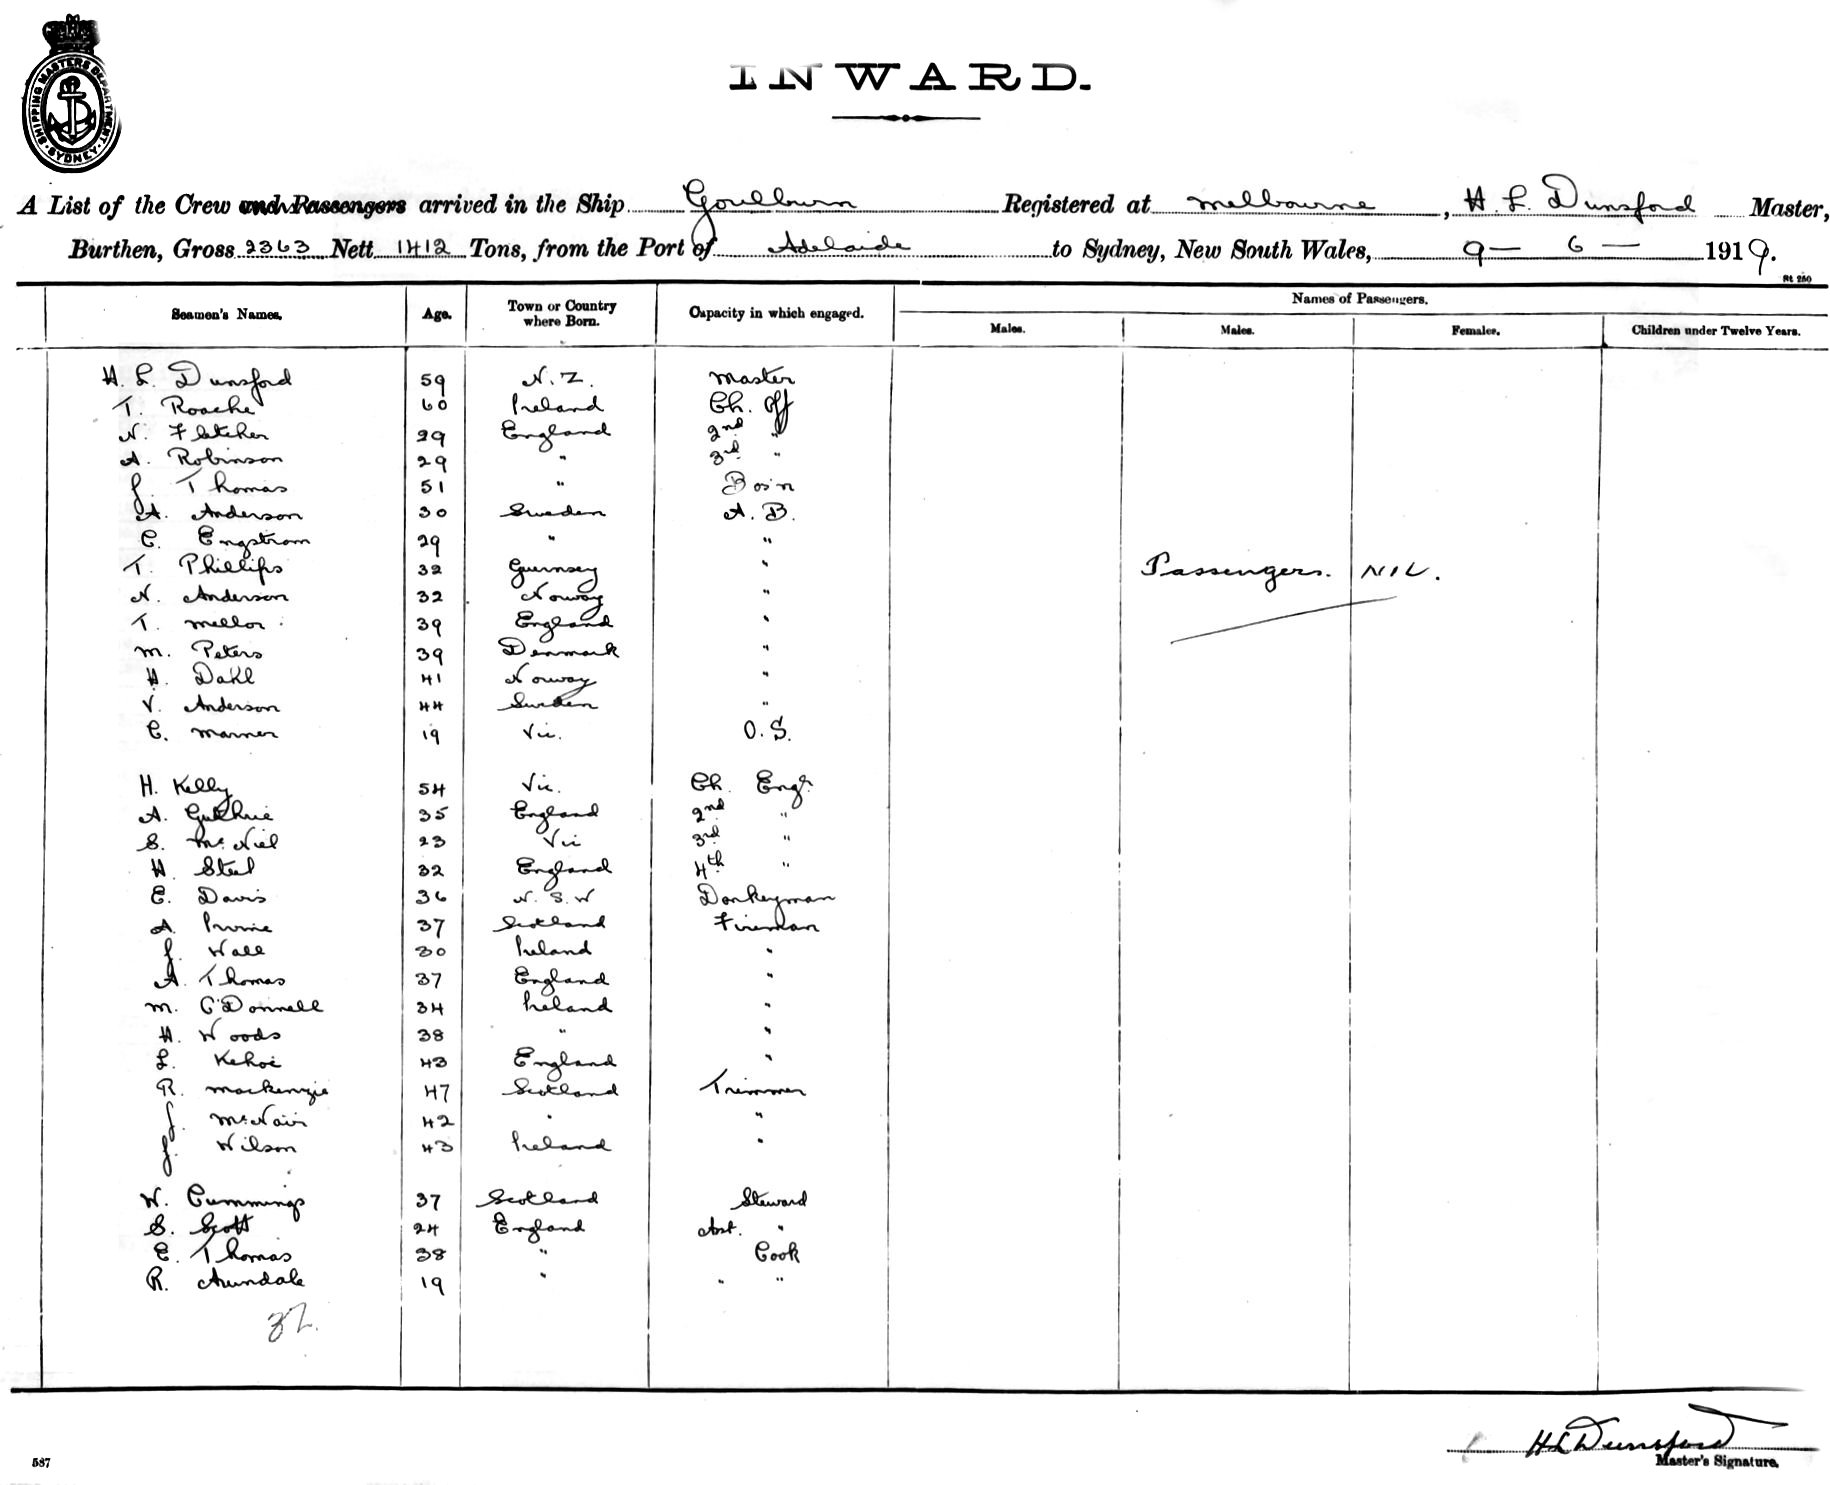 SHIPPING MASTERS DEPARTMENT. SYDNEY.
INWARD.
A List of the Crew and Passengers arrived in the Ship Goulburn Registered at Melbourne, H. L. Dunsford Master,
Burthen, Gross 2363 Nett 1412 Tons, from the Port of Adelaide to Sydney, New South Wales, 9 – 6 – 1919.
Rt 250
Seamen's Names. Age. Town or Country where Born. Capacity in which engaged. Names of Passengers.
Males. Males. Females. Children under Twelve Years.
H. L. Dunsford 59 N.Z. Master
T. Roache 60 Ireland Ch. Off
N. Fletcher 29 England 2nd "
A. Robinson 29 " 3rd "
J. Thomas 51 " Bos'n
A. Anderson 30 Sweden A. B.
C. Engstrom 29 " "
T. Phillips 32 Guernsey " Passengers. NIL.
N. Anderson 32 Norway "
T. Mellor 39 England "
M. Peters 39 Denmark "
H. Dahl 41 Norway "
V. Anderson 44 Sweden "
C. Marner 19 Vic. O. S.
H. Kelly 54 Vic. Ch. Engr
A. Guthrie 35 England 2nd "
S. McNiel 23 Vic 3rd "
H. Steel 32 England 4th "
E. Davis 36 N. S. W Donkeyman
A. Irvine 37 Scotland Fireman
J. Wall 30 Ireland "
A. Thomas 37 England "
M. O'Donnell 34 Ireland "
H. Woods 38 " "
L. Kehoe 43 England "
R. Mackenzie 47 Scotland Trimmer
J. McNair 42 " "
J. Wilson 43 Ireland "
W. Cummings 37 Scotland Steward
S. Scott 24 England Asst. "
E. Thomas 38 " Cook
R. Arundale 19 " " "
32.
HLDunsford
Master's Signature.
587